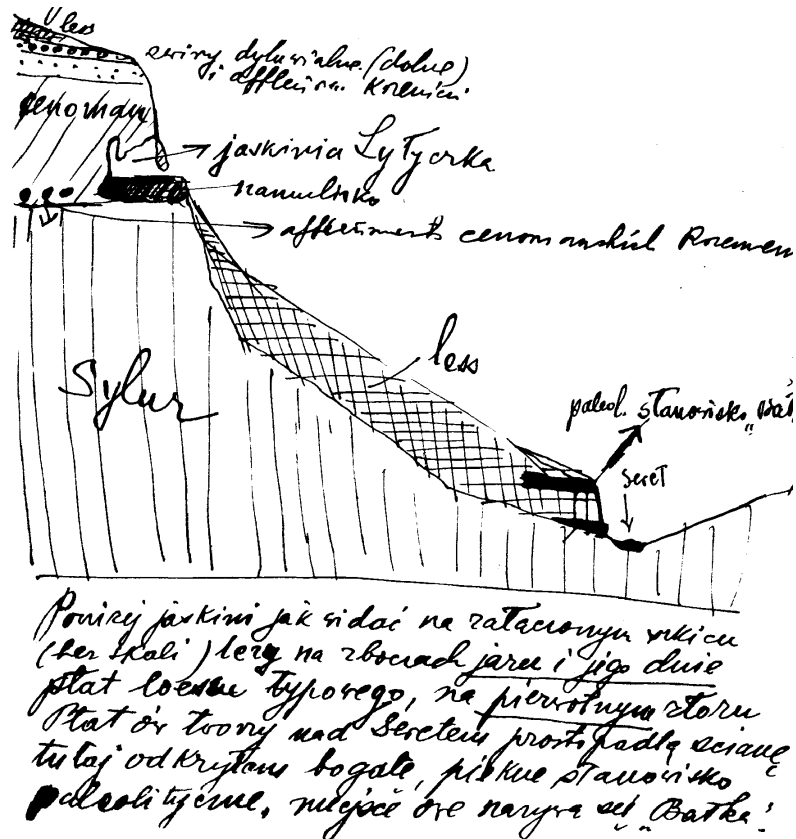 less
żwiry dyluwialne (dolne)
i affleur. Krzemieni
cenoman
jaskinia Łytyczka
namulisko
affleurements cenomańskich Krzemieni
less
Sylur
paleol. stanowisko "Bat
Seret
Poniżej jaskini jak widać na załączonym szkicu
(bez skali) leży na zboczach jaru i jego dnie
płat loessu typowego, na pierwotnym złożu
Płat ów tworzy nad Seretem prostopadłą ścianę
tutaj odkryłem bogate, piękne stanowisko
paleolityczne, miejsce owe nazywa się "Batka"